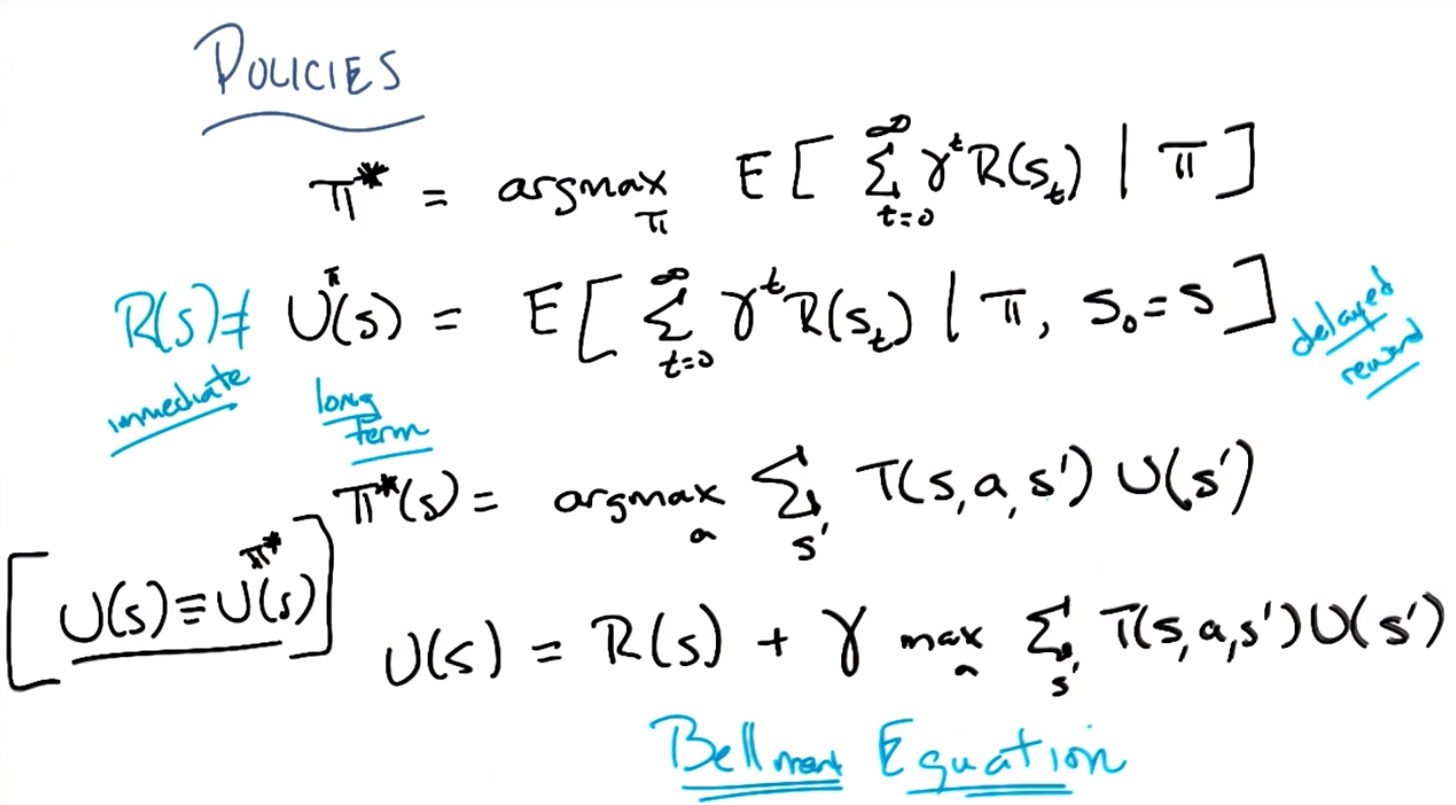 POLICIES
π* = argmax_π E[ ∑_{t=0}^{∞} γ^t R(s_t) | π ]
R(s) ≠ U^π(s) = E[ ∑_{t=0}^{∞} γ^t R(s_t) | π, s_0 = s ]
immediate
long
term
delayed
reward
π*(s) = argmax_a ∑_{s'} T(s, a, s') U(s')
[ U(s) ≡ U^{π*}(s) ]
U(s) = R(s) + γ max_a ∑_{s'} T(s, a, s') U(s')
Bellman Equation